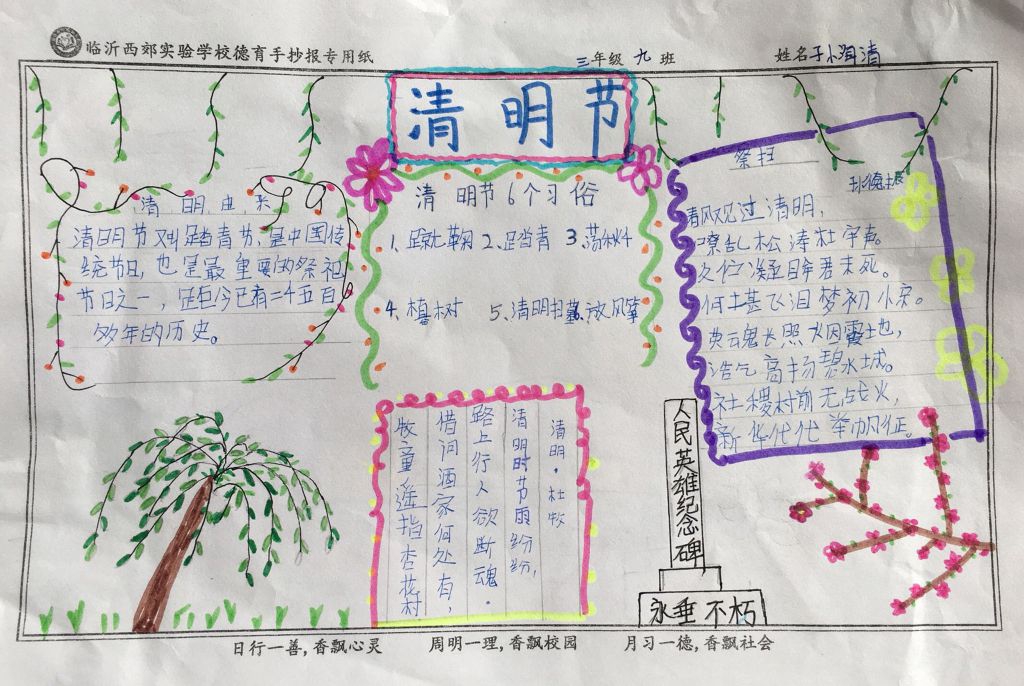 临沂西郊实验学校德育手抄报专用纸
三年级 九 班
姓名
清明节
清明由来
清明节又叫踏青节,是中国传
统节日,也是最重要的祭祀
节日之一,距今已有二千五百
多年的历史。
清明节6个习俗
1、蹴鞠 2、踏青 3、荡秋千
4、植树 5、清明扫墓 6、放风筝
祭扫
清风观过清明,
嘹乱松涛杜宇声。
久伫凝目君未死。
何土甚飞泪梦初
英云鬼长照火因霞土也,
浩气高扬碧水城。
社稷村前无战火,
新华代代举帆征。
清明·杜牧
清明时节雨纷纷,
路上行人欲断魂·
借问酒家何处有,
牧童遥指杏花村
人民英雄纪念碑
永垂不朽
日行一善,香飘心灵
周明一理,香飘校园
月习一德,香飘社会